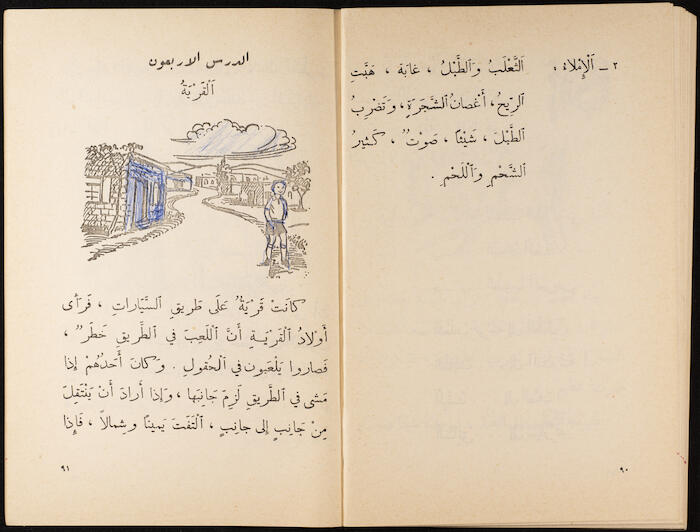 ٢ ــ اَلْإِمْلَاءُ : اَلثَّعْلَبُ وَاَلطَّبْلُ ، غابَة ، هَبَّتِ
اَلرِّيحُ، أَغْصانُ اَلشَّجَرَةِ، وَتَضْرِبُ
اَلطَّبْلَ ، شَيْئًا ، صَوْتٌ ، كَثِيرُ
اَلشَّحْمِ وَاَللَّحْمِ .
٩٠
الدرس الاربعون
اَلْقَرْيَةُ
كانَتْ قَرْيَةٌ عَلَى طَرِيقِ اَلسَّيَّاراتِ ، فَرَأَى
أَوْلادُ اَلْقَرْيَةِ أَنَّ اَللَّعِبَ في اَلطَّرِيقِ خَطَرٌ ،
فَصاروا يَلْعَبون في اَلْحُقولِ . وَكانَ أَحَدُهُمْ إذا
مَشى في اَلطَّرِيقِ لَزِمَ جانِبَها ، وَإذا أرادَ أَنْ يَنْتَقِلَ
مِنْ جانِبٍ إلى جانِبٍ ، اَلْتَفَتَ يَمينًا وشِمالاً ، فَإِذا
٩١